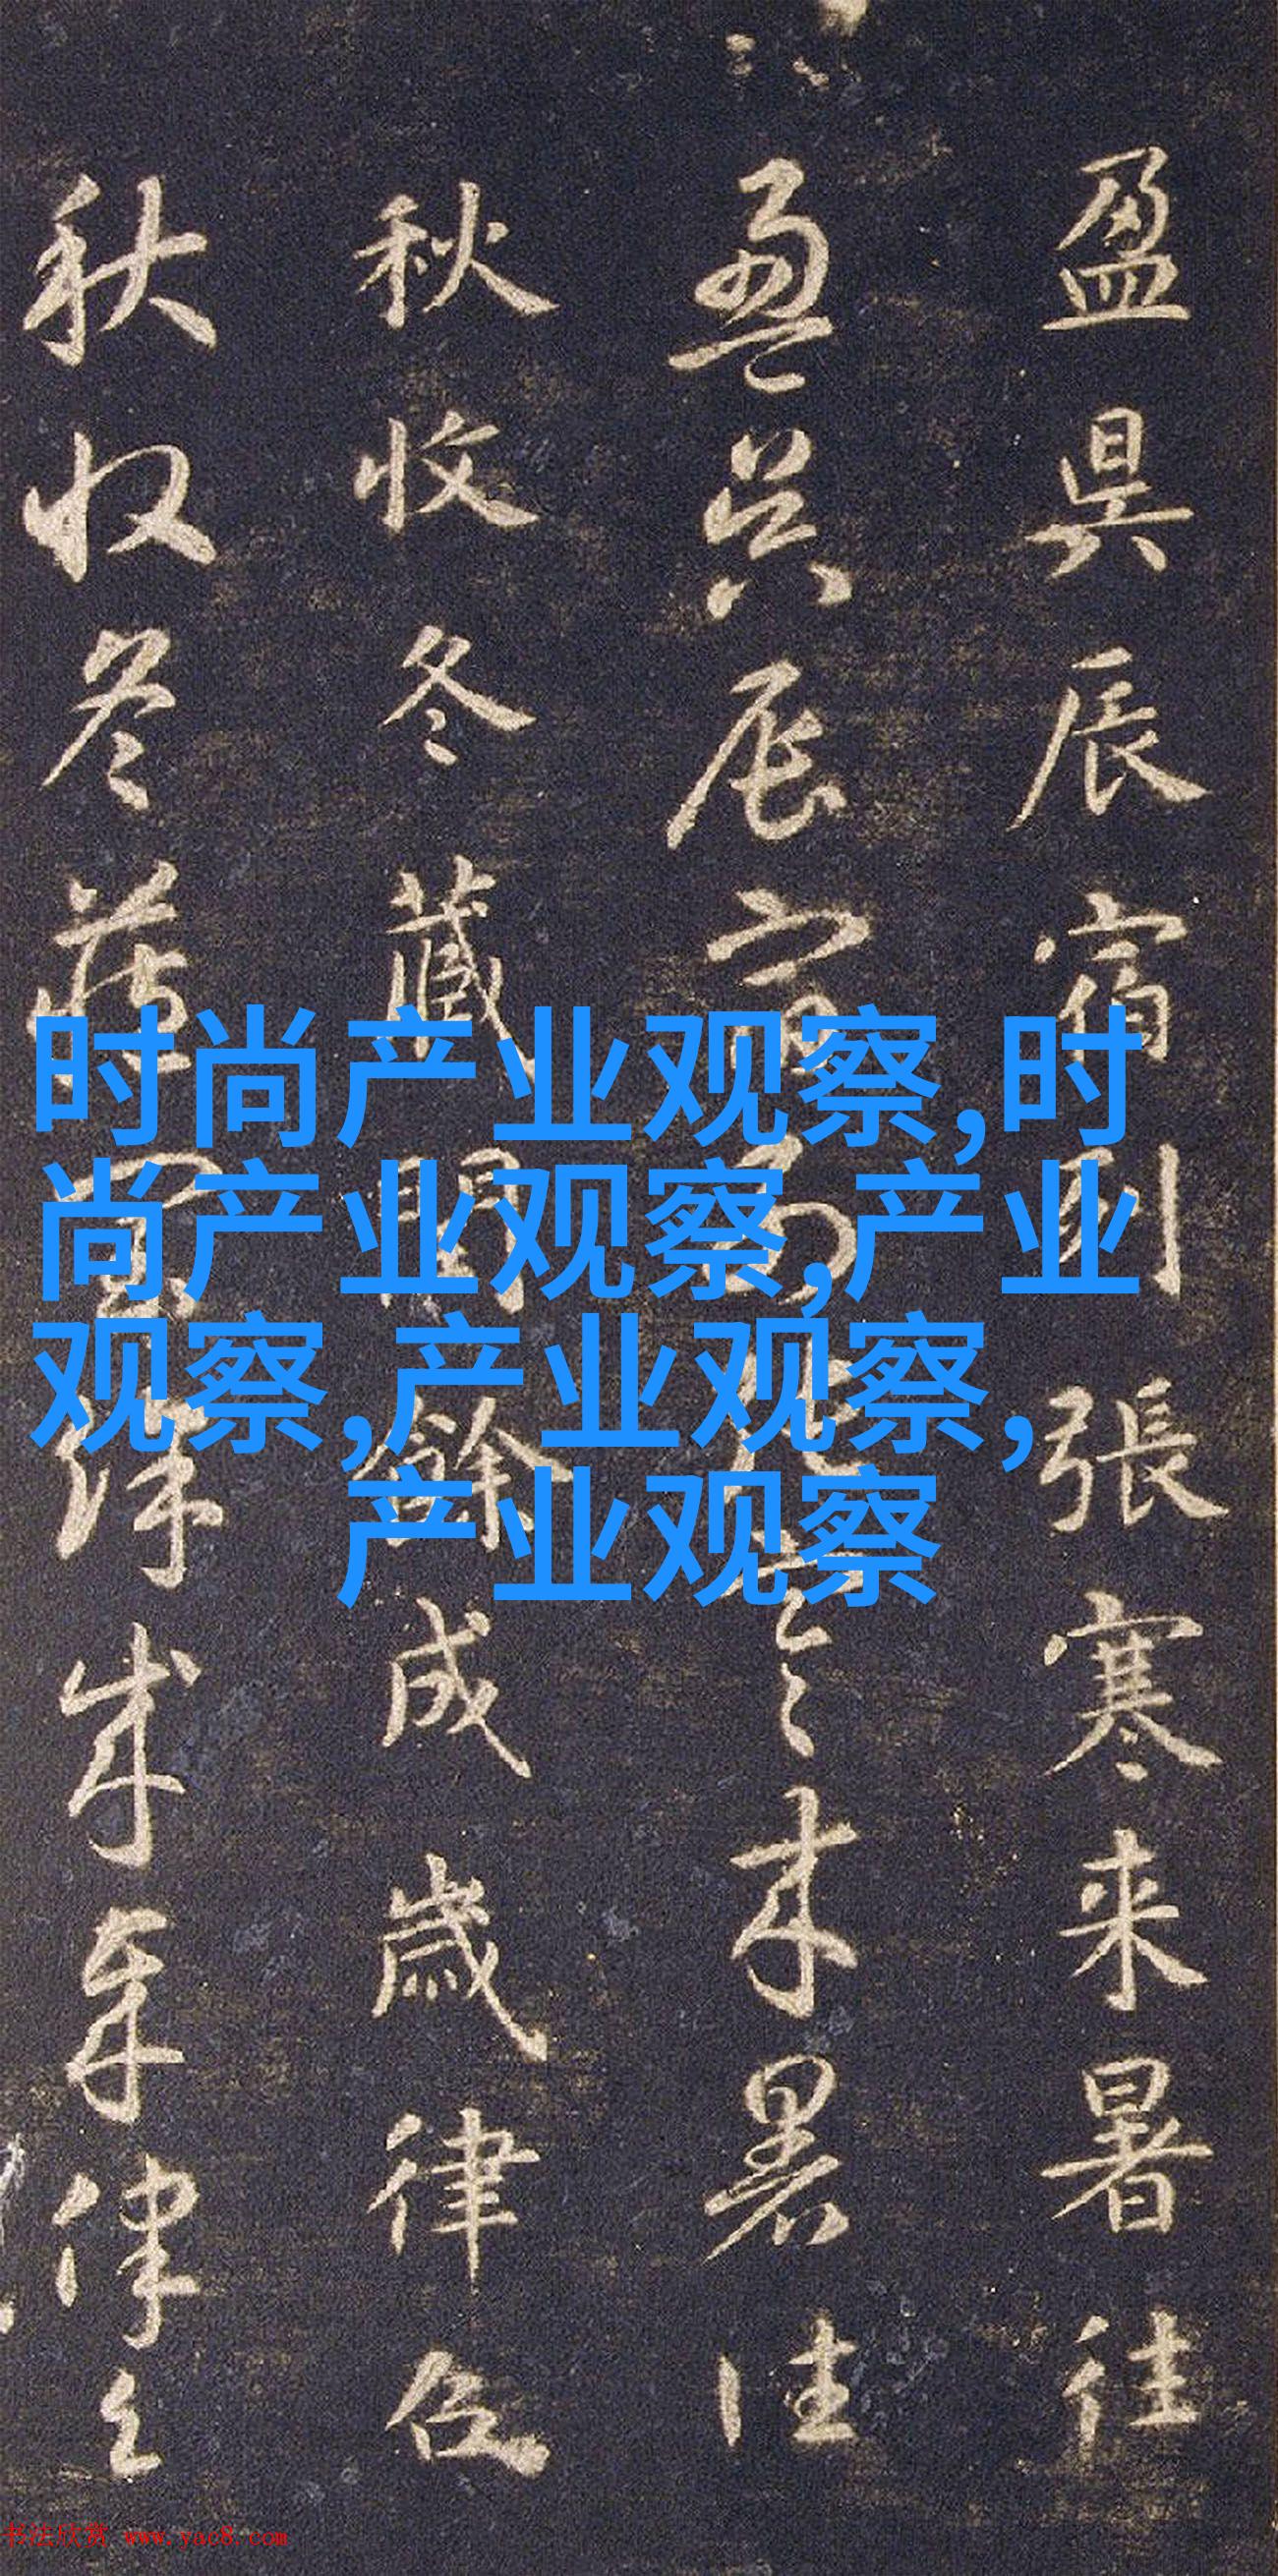 盈昃辰宿列張寒来暑往
盈昃辰宿列張寒来暑往
秋收冬藏閏餘成歲律呂
秋收冬藏閏餘成歲律呂
时尚产业观察,时
尚产业观察,产业
观察,产业观察,
产业观察
书法欣赏 www.yac8.com